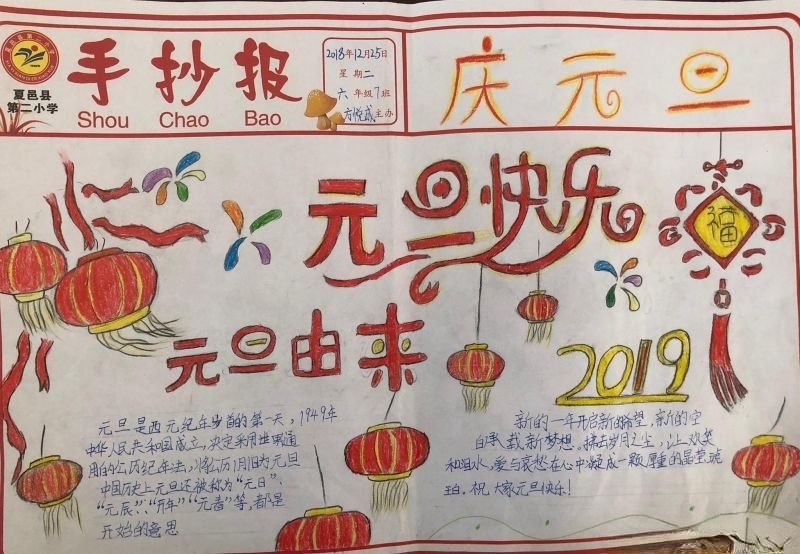 夏邑县
第二小学
手抄报
Shou Chao Bao
2018年12月25日
星期二
六年级7班
主办
庆元旦
元旦快乐
福
元旦由来
2019
元旦是西元纪年岁首的第一天，1949年
中华人民共和国成立，决定采用世界通
用的公历纪年法，将公历1月1日为元旦
中国历史上元旦还被称为“元日”、
“元辰”、“开年”“元春”等，都是
开始的意思
新的一年开启新的希望，新的空
白承载新梦想。拂去岁月之尘，让欢笑
和泪水、爱与哀愁在心中凝成一颗厚重的晶莹琥
珀。祝大家元旦快乐！